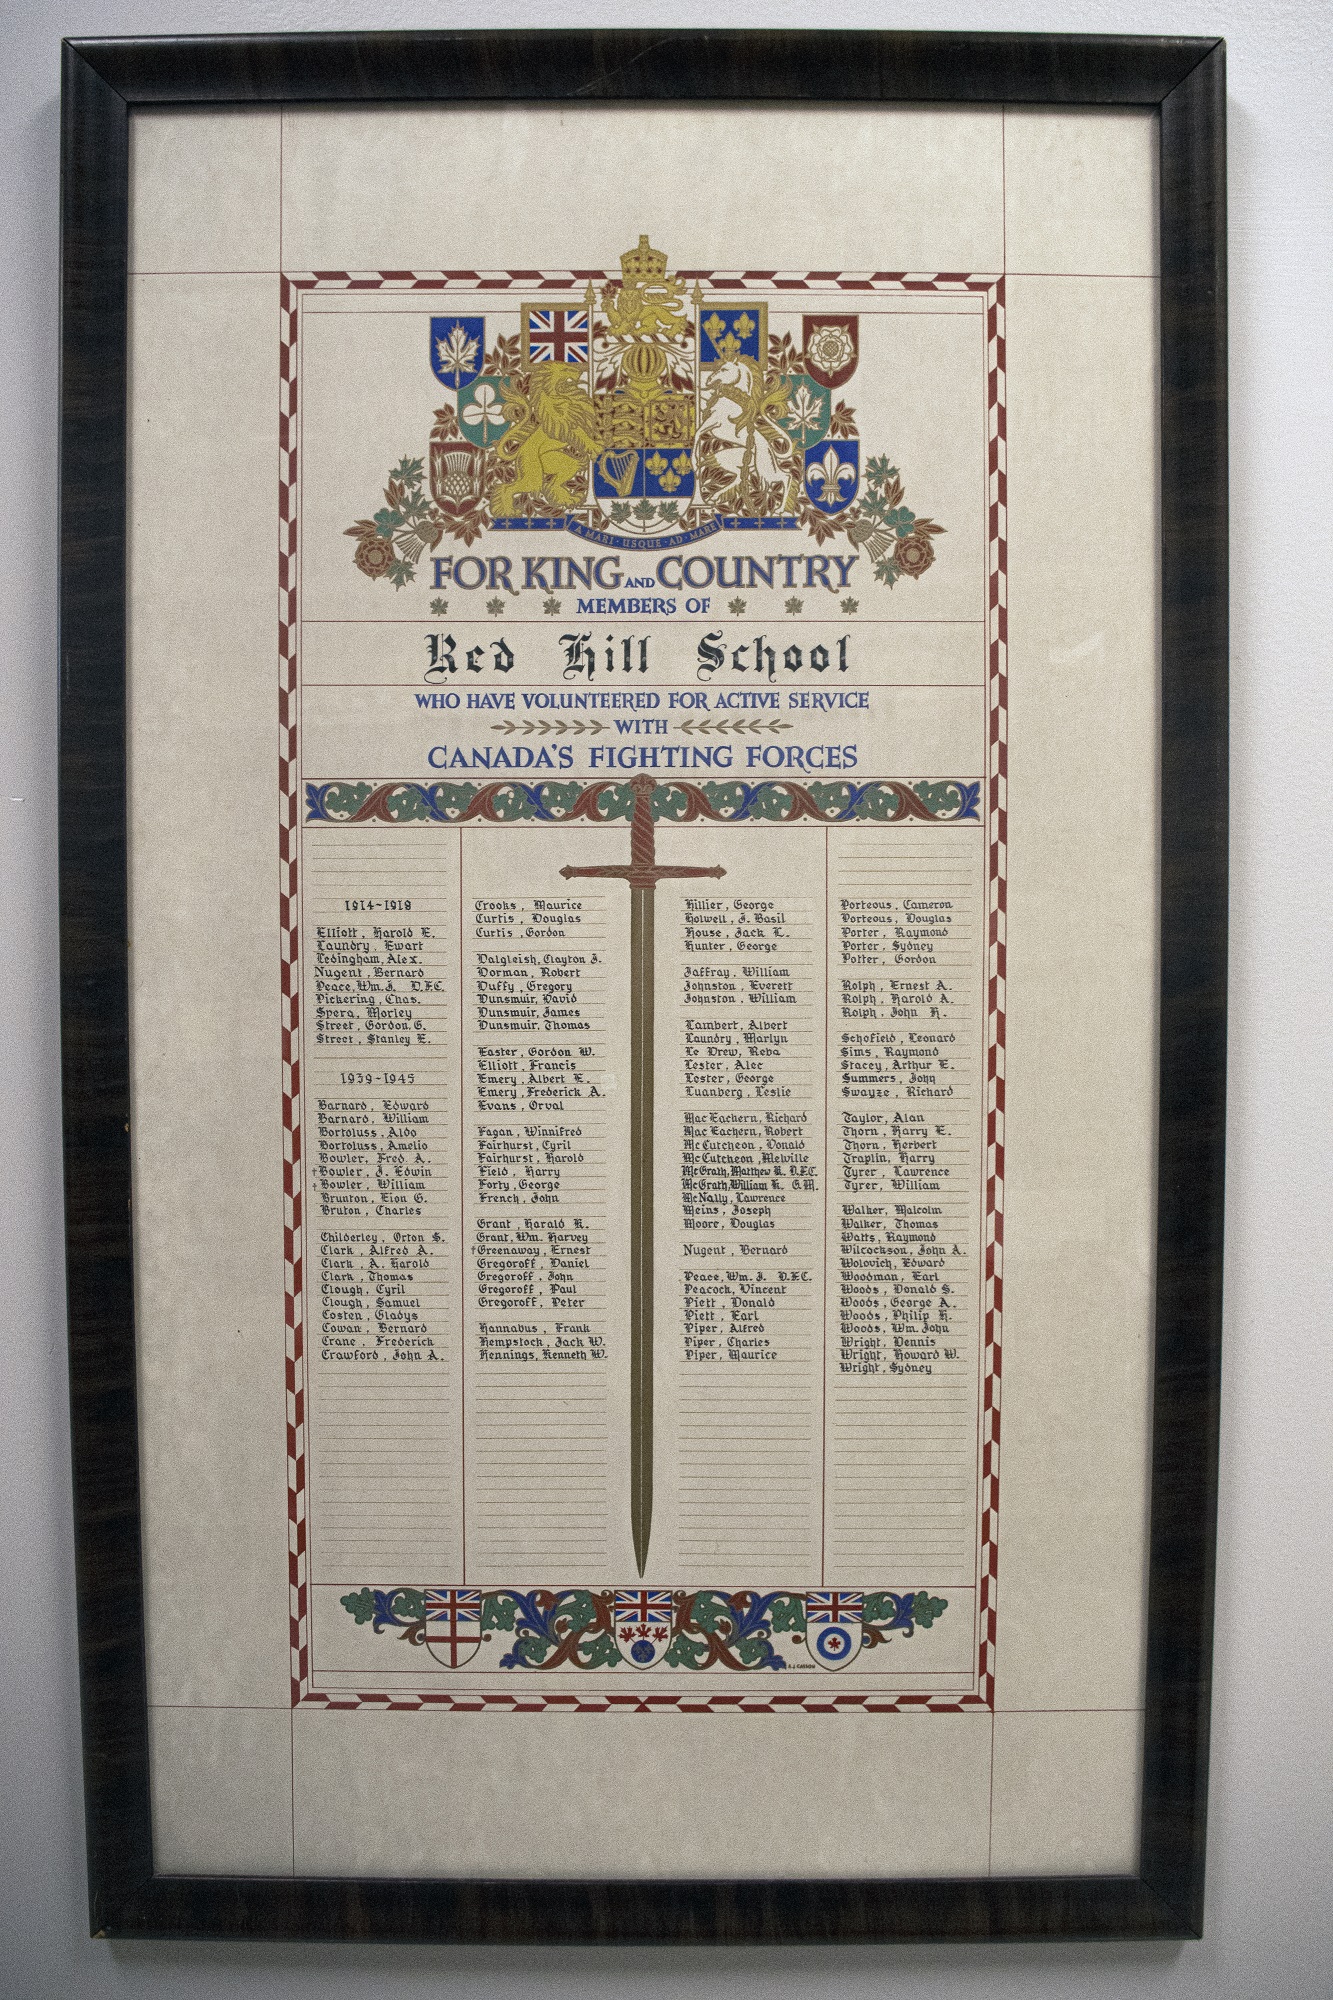 A MARI · USQUE · AD · MARE
FOR KING AND COUNTRY
MEMBERS OF
Red Hill School
WHO HAVE VOLUNTEERED FOR ACTIVE SERVICE
WITH
CANADA'S FIGHTING FORCES
1914-1918
Elliott, Harold E.
Laundry, Ewart
Ledingham, Alex.
Nugent, Bernard
Peace, Wm. J. D.F.C.
Pickering, Chas.
Spera, Morley
Street, Gordon. G.
Street, Stanley E.
1939-1945
Barnard, Edward
Barnard, William
Bortoluss, Aldo
Bortoluss, Amelio
Bowler, Fred A.
†Bowler, J. Edwin
†Bowler, William
Brunton, Eion G.
Bruton, Charles
Childerley, Orton S.
Clark, Alfred A.
Clark, A. Harold
Clark, Thomas
Clough, Cyril
Clough, Samuel
Costen, Gladys
Cowan, Bernard
Crane, Frederick
Crawford, John A.
Crooks, Maurice
Curtis, Douglas
Curtis, Gordon
Dalgleish, Clayton J.
Dorman, Robert
Duffy, Gregory
Dunsmuir, David
Dunsmuir, James
Dunsmuir, Thomas
Easter, Gordon W.
Elliott, Francis
Emery, Albert E.
Emery, Frederick A.
Evans, Orval
Fagan, Winnifred
Fairhurst, Cyril
Fairhurst, Harold
Field, Harry
Forty, George
French, John
Grant, Harald R.
Grant, Wm. Harvey
†Greenaway, Ernest
Gregoroff, Daniel
Gregoroff, John
Gregoroff, Paul
Gregoroff, Peter
Hannabus, Frank
Hempstock, Jack W.
Hennings, Kenneth W.
Hillier, George
Holwell, J. Basil
House, Jack L.
Hunter, George
Jaffray, William
Johnston, Everett
Johnston, William
Lambert, Albert
Laundry, Marlyn
Le Drew, Reba
Lester, Alec
Lester, George
Luanberg, Leslie
Mac Eachern, Richard
Mac Eachern, Robert
Mc Cutcheon, Donald
Mc Cutcheon, Melville
McGrath, Matthew R. D.F.C.
McGrath, William K. G.M.
McNally, Lawrence
Meins, Joseph
Moore, Douglas
Nugent, Bernard
Peace, Wm. J. D.F.C.
Peacock, Vincent
Piett, Donald
Piett, Earl
Piper, Alfred
Piper, Charles
Piper, Maurice
Porteous, Cameron
Porteous, Douglas
Porter, Raymond
Porter, Sydney
Potter, Gordon
Rolph, Ernest A.
Rolph, Harold A.
Rolph, John H.
Schofield, Leonard
Sims, Raymond
Stacey, Arthur E.
Summers, John
Swayze, Richard
Taylor, Alan
Thorn, Harry E.
Thorn, Herbert
Traplin, Harry
Tyrer, Lawrence
Tyrer, William
Walker, Malcolm
Walker, Thomas
Watts, Raymond
Wilcockson, John A.
Wolovich, Edward
Woodman, Earl
Woods, Donald S.
Woods, George A.
Woods, Philip H.
Woods, Wm. John
Wright, Dennis
Wright, Howard W.
Wright, Sydney
A J CASSON